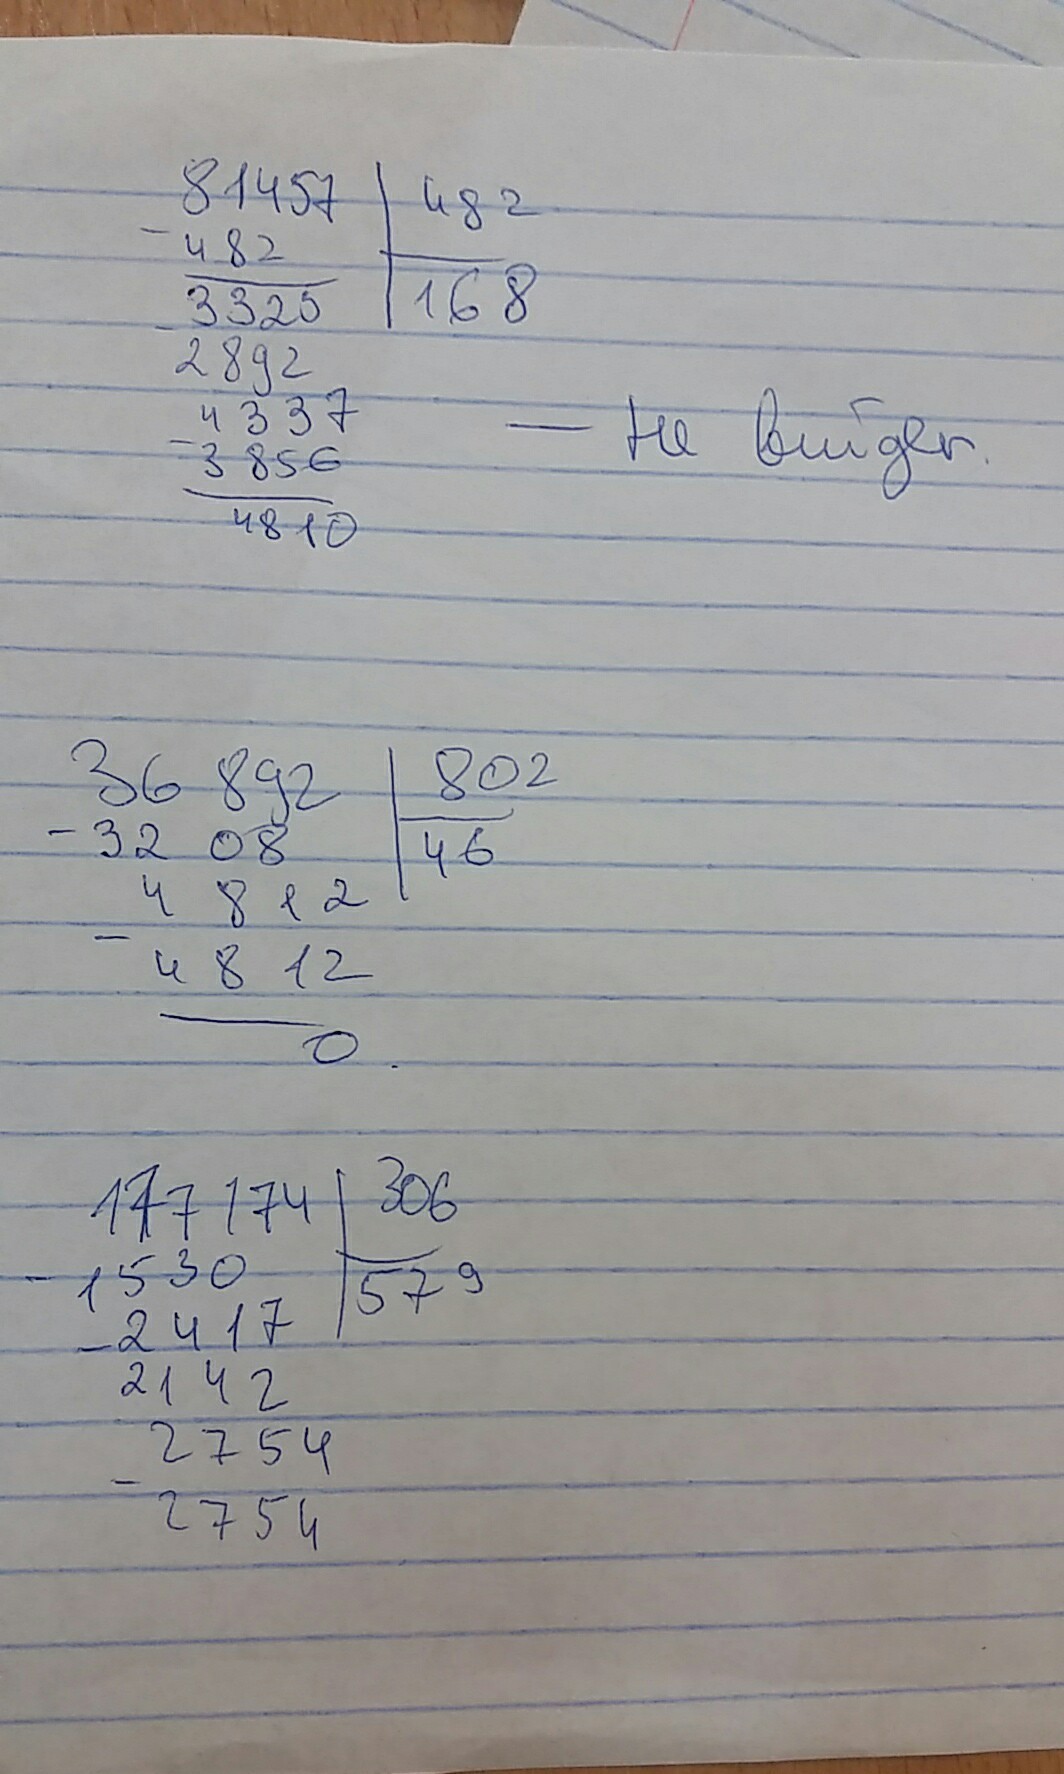 81457 | 482
- 482 | 168
3325
- 2892
4337
- 3856
4810
— не выйдет.
36 892 | 802
- 32 08 | 46
4 812
- 4 812
0.
177 174 | 306
- 1530 | 579
- 2417
2142
2754
- 2754